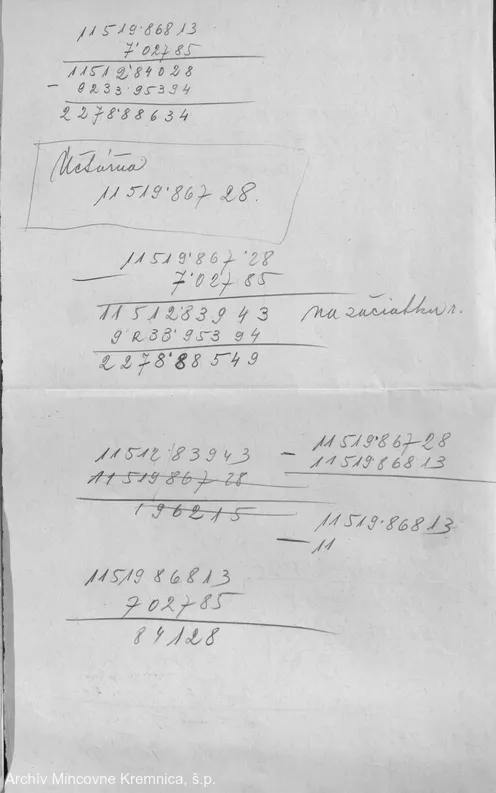 11519·86813
7·02785
11512·84028
- 9233·95394
2278·88634
Učtárňa
11519·867 28.
11519·867·28
- 7·027 85
11512·839 43 na začiatku r.
9233·953 94
2278·88549
11512·83943
11519867 28
196215
- 11519·867 28
1151986813
11519·86813
- 11
1151986813
702785
84128
Archív Mincovne Kremnica, š.p.